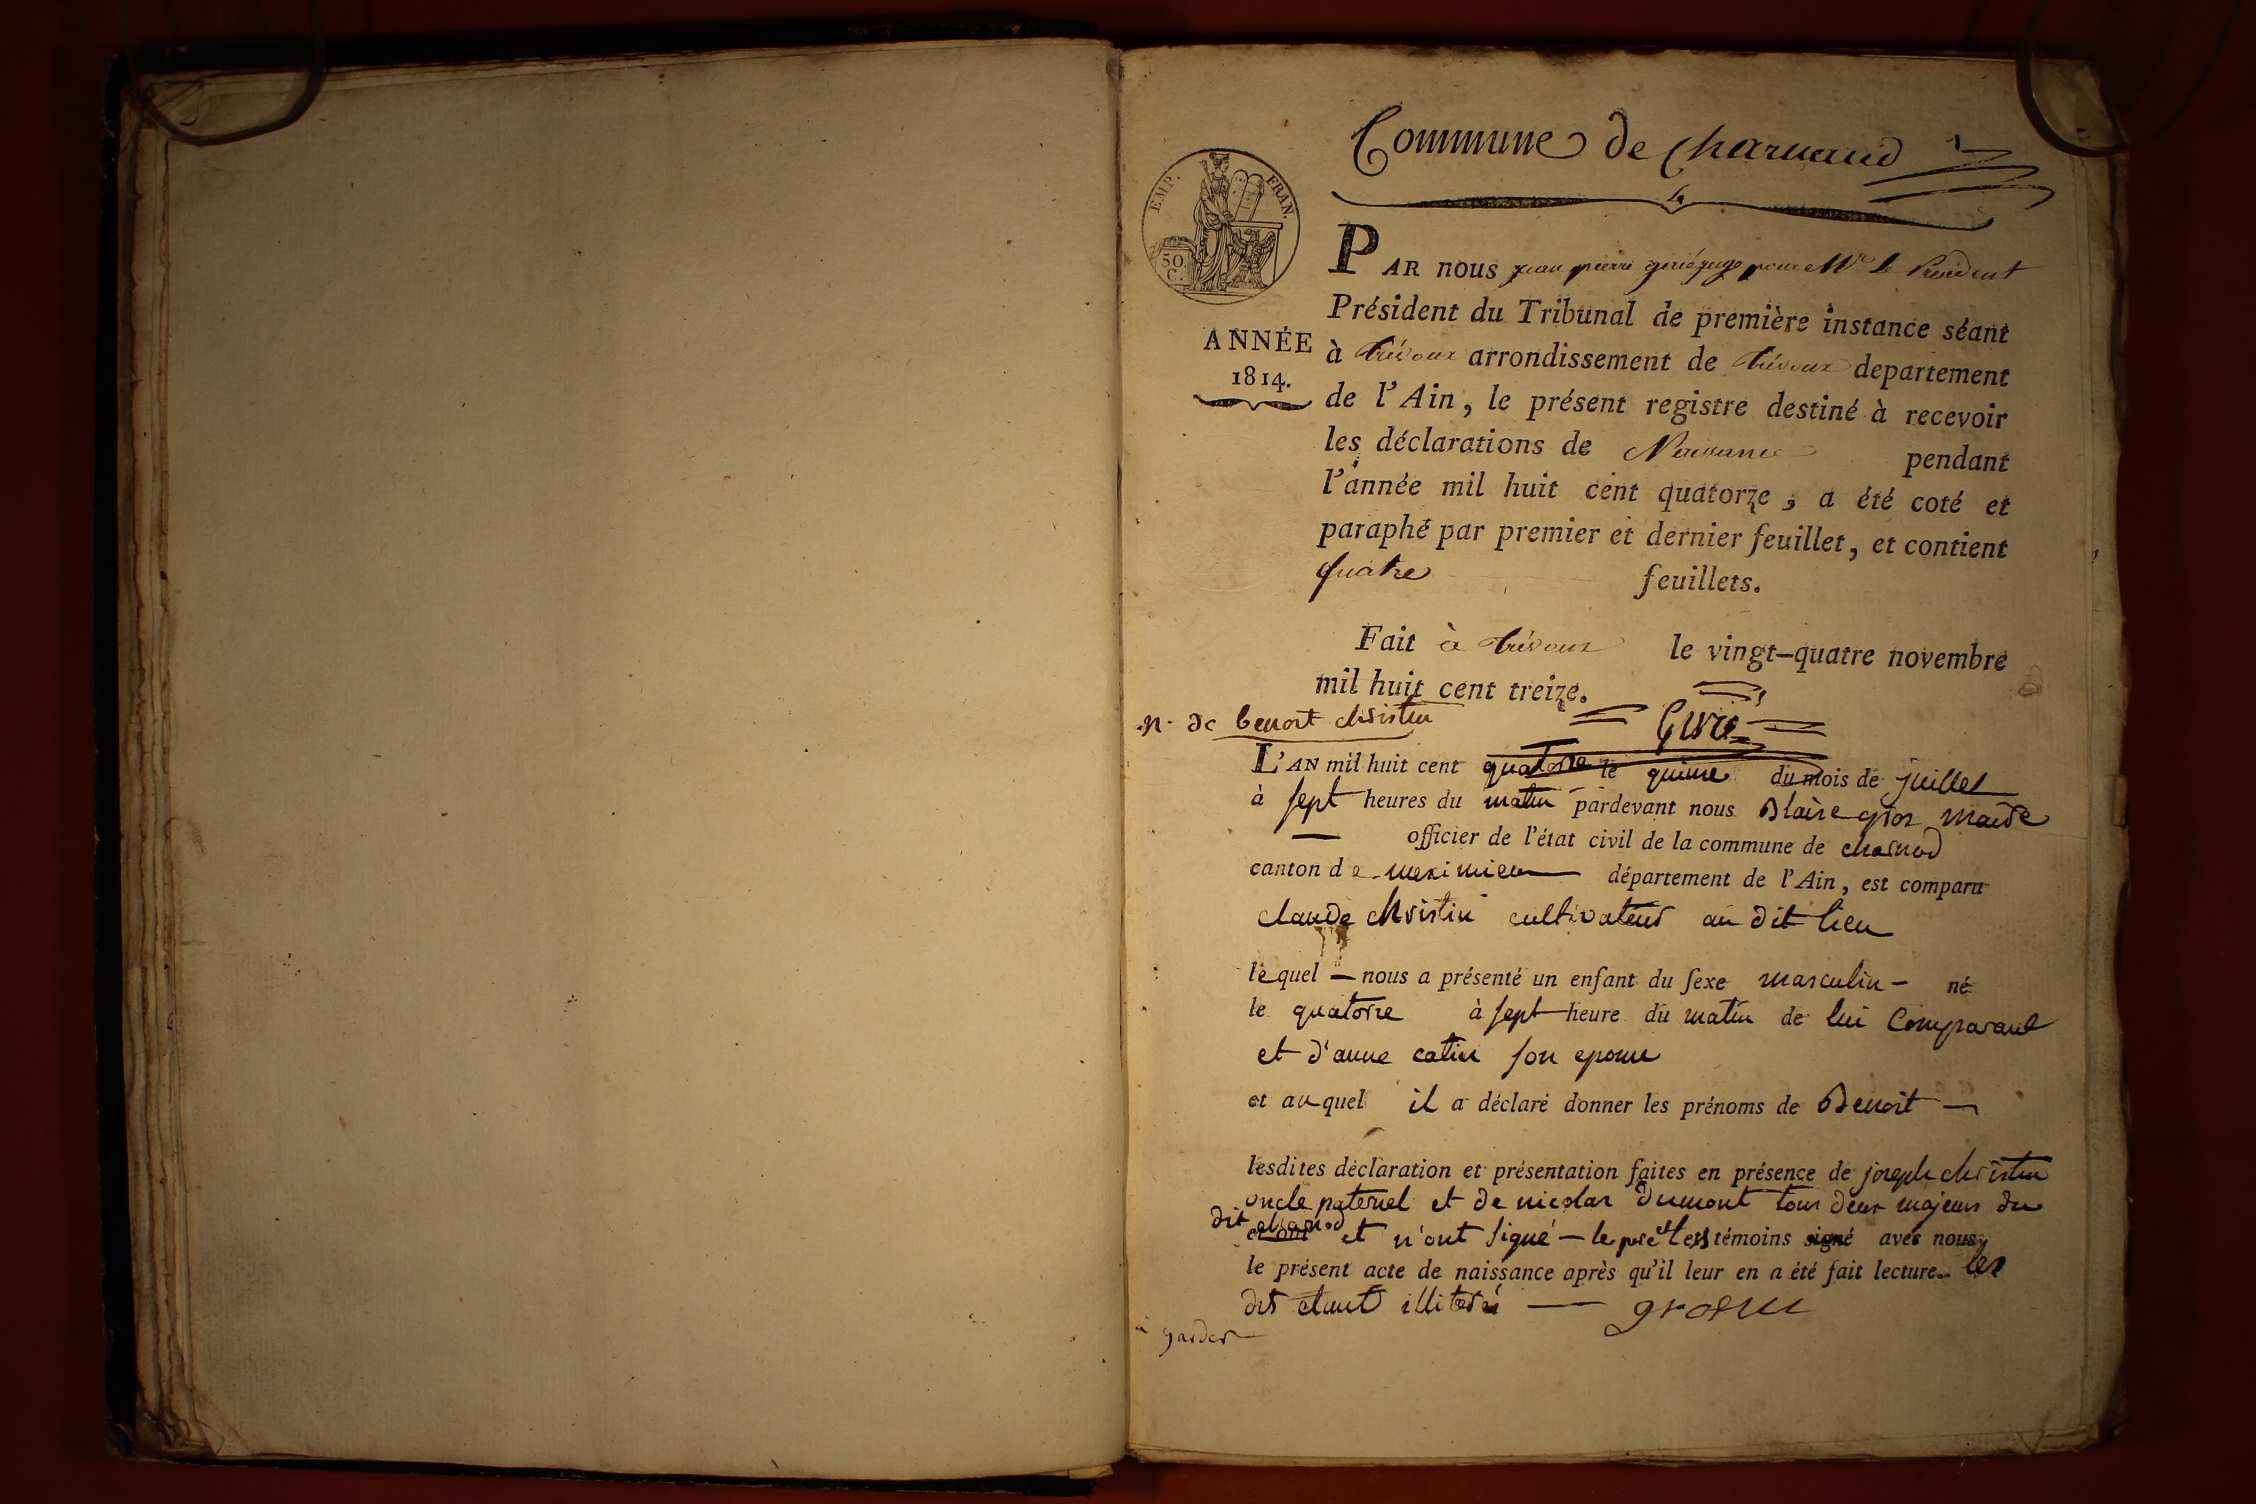 Commune de Charnaud
1
EMP. FRAN.
50.
C.
ANNÉE
1814.
PAR nous jean pierre juge pour Mr le President
Président du Tribunal de première instance séant
à Trévoux arrondissement de Trévoux departement
de l'Ain, le présent registre destiné à recevoir
les déclarations de Naissance pendant
l'année mil huit cent quatorze, a été coté et
paraphé par premier et dernier feuillet, et contient
quatre feuillets.
Fait à Trévoux le vingt-quatre novembre
mil huit cent treize.
n. de benoit christin
L'AN mil huit cent quatorze le quinze du mois de juillet
à sept heures du matin pardevant nous Blaise gros maire
— officier de l'état civil de la commune de charnod
canton de meximieu département de l'Ain, est comparu
claude christin cultivateur au dit lieu
lequel — nous a présenté un enfant du sexe masculin — né
le quatorze à sept heure du matin de lui Comparant
et d'anne catin son epouse
et auquel il a déclaré donner les prénoms de Benoit —
lesdites déclaration et présentation faites en présence de joseph christin
oncle paternel et de nicolas dumont tous deux majeurs du
dit charnod
et ont et n'ont signé — le pere et les témoins signé avec nous
le présent acte de naissance après qu'il leur en a été fait lecture. les
dits etant illiterés —
a garder